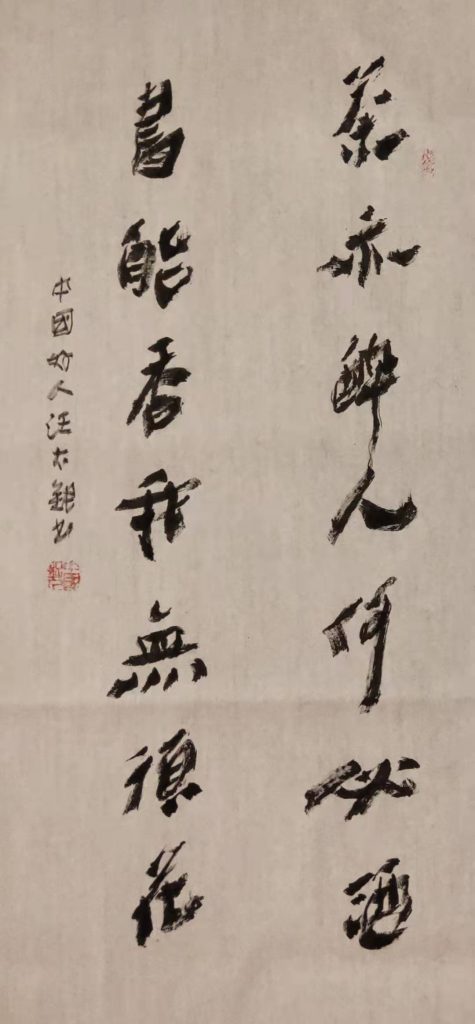 茶亦醉人何必酒
書能香我無須花
中國好人汪太銀书